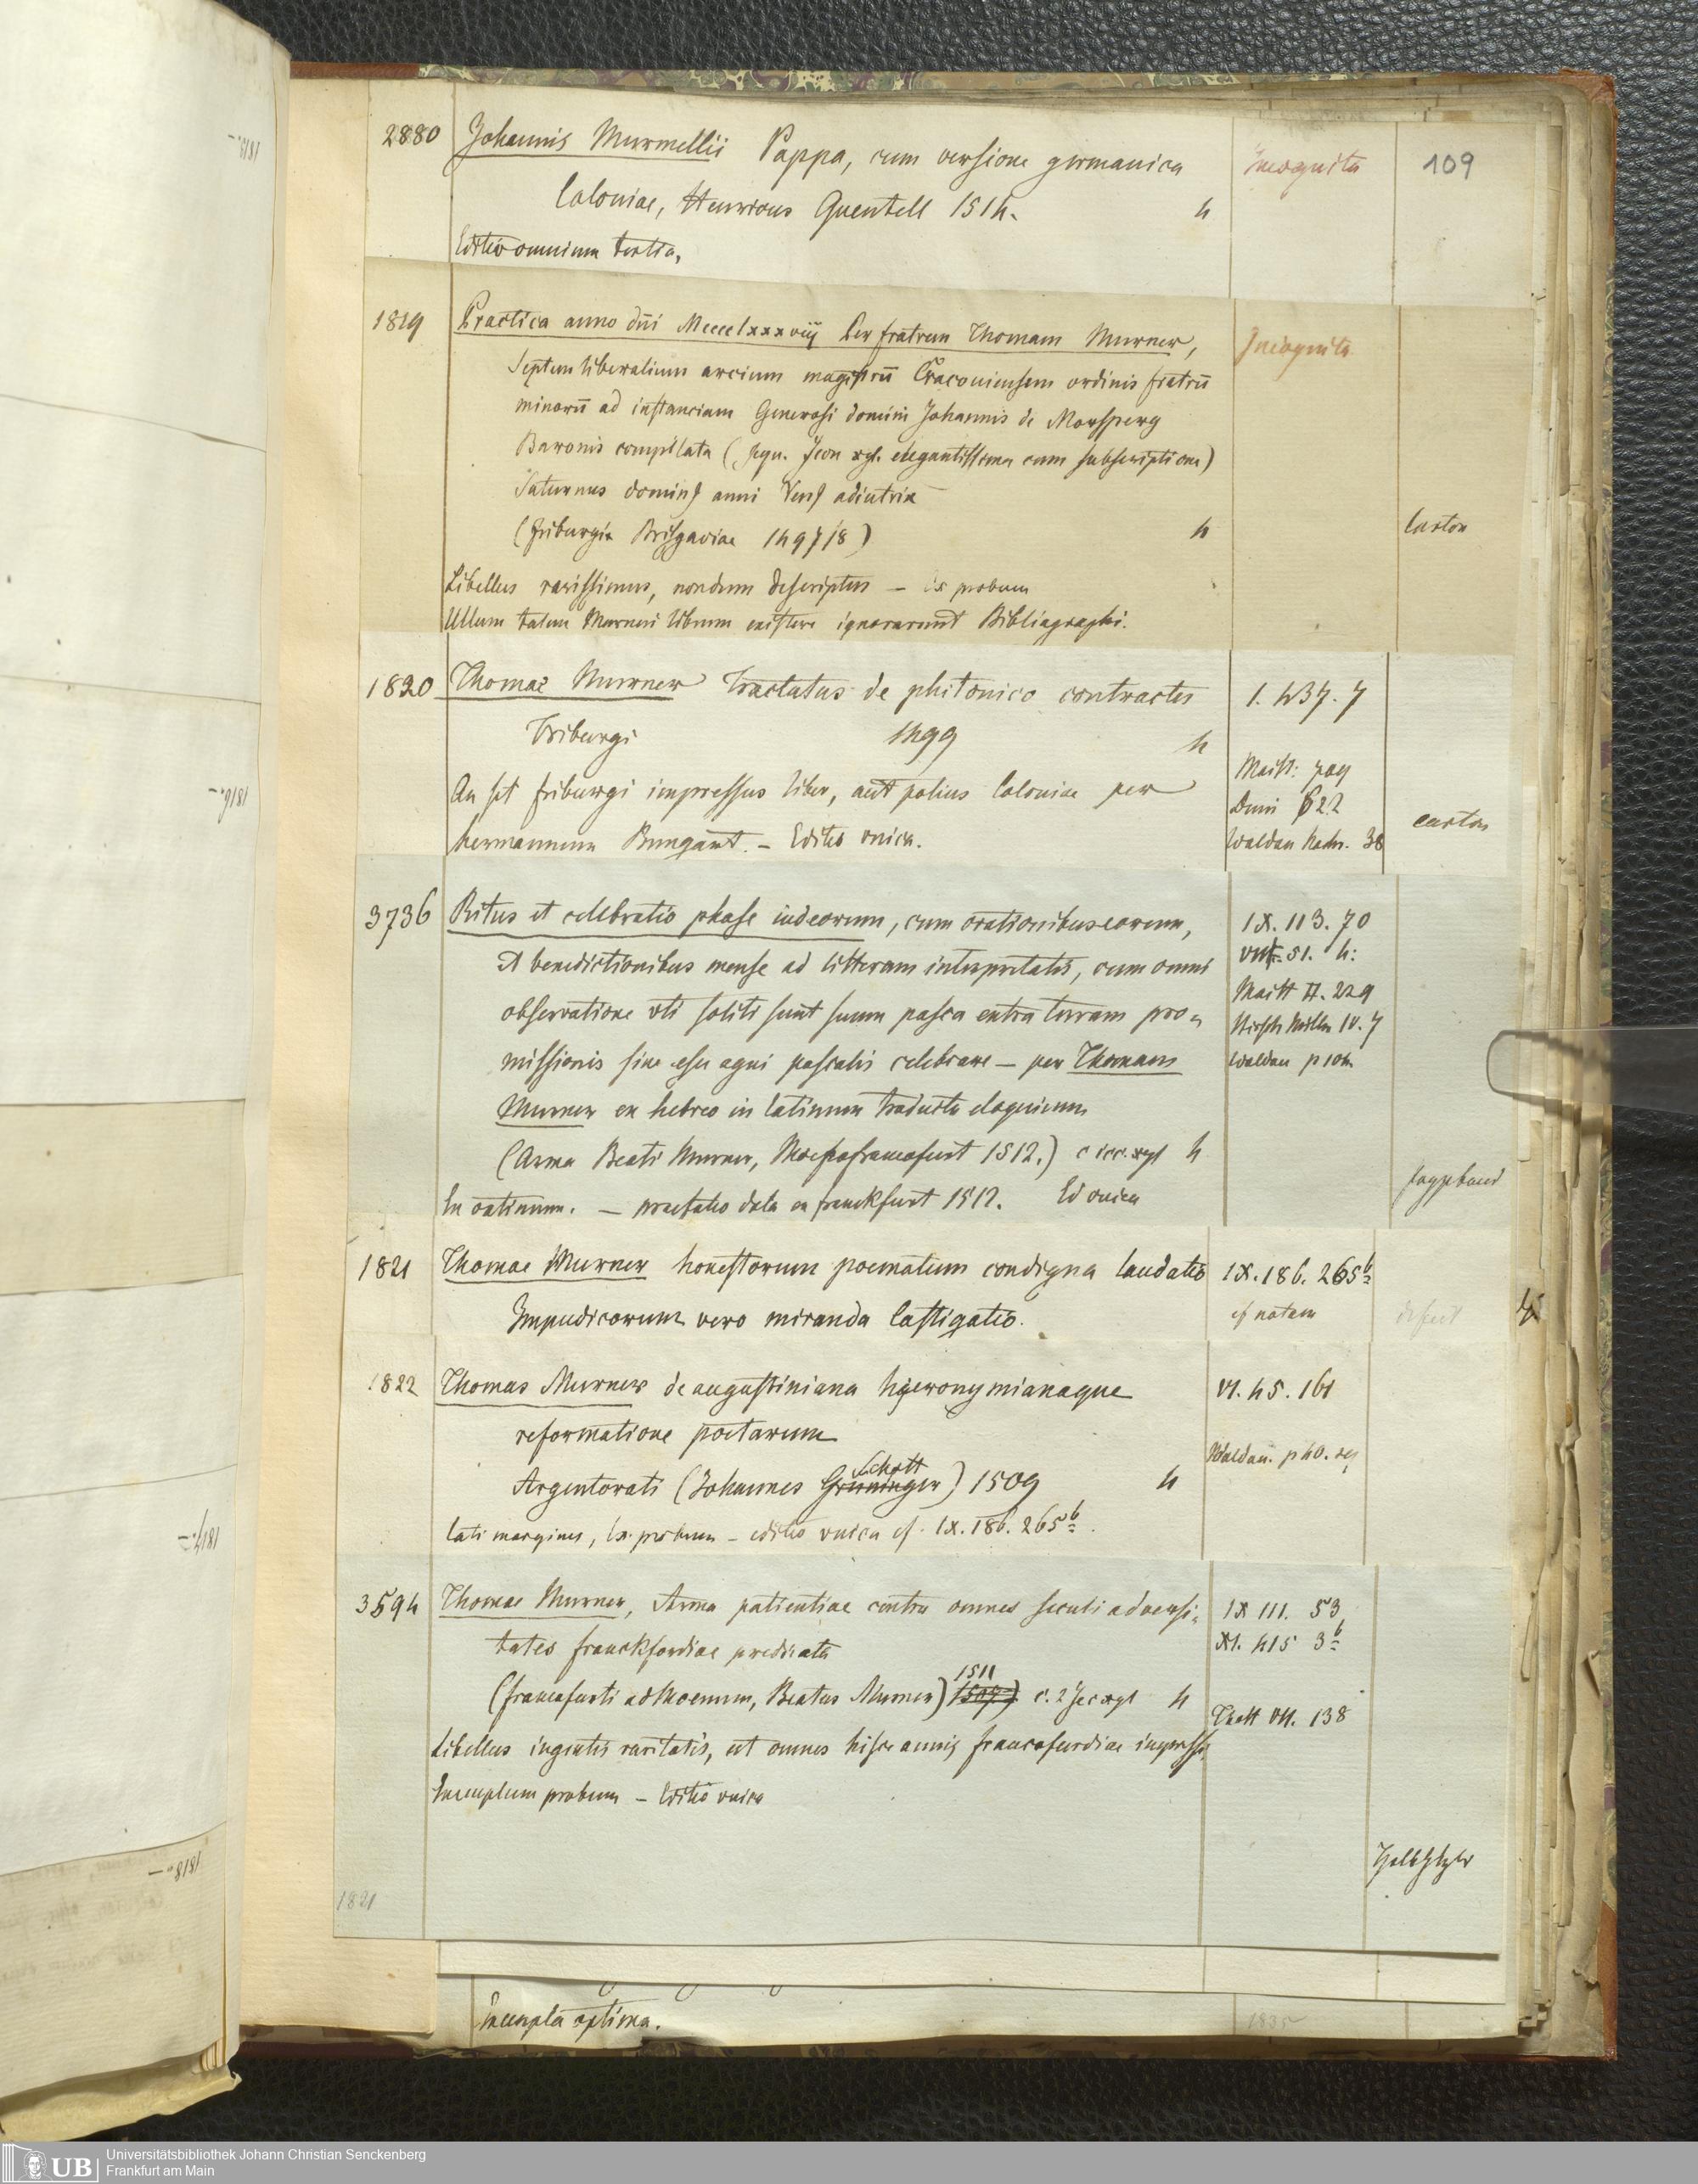 2880 Johannis Murmellii Pappa, cum versione germanica Incognita 109
Coloniae, Henricus Quentell 1514. 4
Editio omnium tertia.
1819 Practica anno dñi Mcccclxxxviij Per fratrem Thomam Murner, Incognita
Septem liberalium arcium magistrũ Cracouiensem ordinis fratrũ
minorũ ad instanciam Generosi domini Johannis de Morsperg
Baronis compilata ( Icon xyl. elegantissima cum subscriptione)
Saturnus anni adiutrix
(Friburgi Brisgaviae 1497/8) 4 Carton
Libellus rarissimus, nondum descriptus — Ex probum
Ullum talem Murneri librum existere ignorarunt Bibliographi.
1820 Thomae Murner Tractatus de phitonico contractu 1. 437. 7
Friburgi 1499 4
Maitt: 709
An sit friburgi impressus liber, aut potius Coloniae per Deni 622
hermannum Bungart. — Editio unica. Waldau 38 carton
3736 Ritus et celebratio phase iudeorum, cum orationibus eorum, IX. 113. 70
Et benedictionibus mense ad litteram interpretatis, cum omni 51. 4:
observatione vti soliti sunt suum pasca extra terram pro= Maitt II. 229
Hirsch Millen IV. 7
missionis sine esu agni pascalis celebrare — per Thomam Waldau p 104
Murner ex hebreo in latinum traducta eloquium
(Arma Beati Murner, 1512.) 4
— praefatio data ex franckfurt 1512. Ed unica pappband
1821 Thomae Murner honestorum poematum condigna laudatio IX. 186. 265b
Impudicorum vero miranda Castigatio. cf notam defect
1822 Thomas Murner de augustiniana hieronymianaque VI. 45. 161
reformatione poetarum
Waldau. p 40. sq
Schott
Argentorati (Johannes Grüninger) 1509 4
lati margines, Ex. probum — editio unica cf. IX. 186. 265b.
3594 Thomae Murner, Arma patientiae contra omnes seculi adversi= IX 111. 53
tates franckfordiae predicata XI. 415 3b
1511
(francofurti ad Moenum, Beatus Murner) 4
138
Libellus ingentis raritatis, ut omnes hisce annis francofurdiae impressi
Exemplum probum — Editio unica
1821
Exempla optima.
1835
1816.—
1817.—
1818.—
UB Universitätsbibliothek Johann Christian Senckenberg
Frankfurt am Main